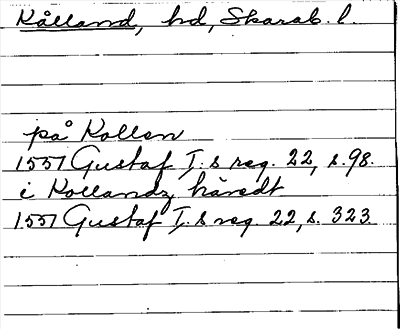 Kålland, hd, Skarab. l.
på Kollen
1557 Gustaf I:s reg. 22, s. 98.
i Kollandz häredt
1557 Gustaf I:s reg. 22, s. 323.